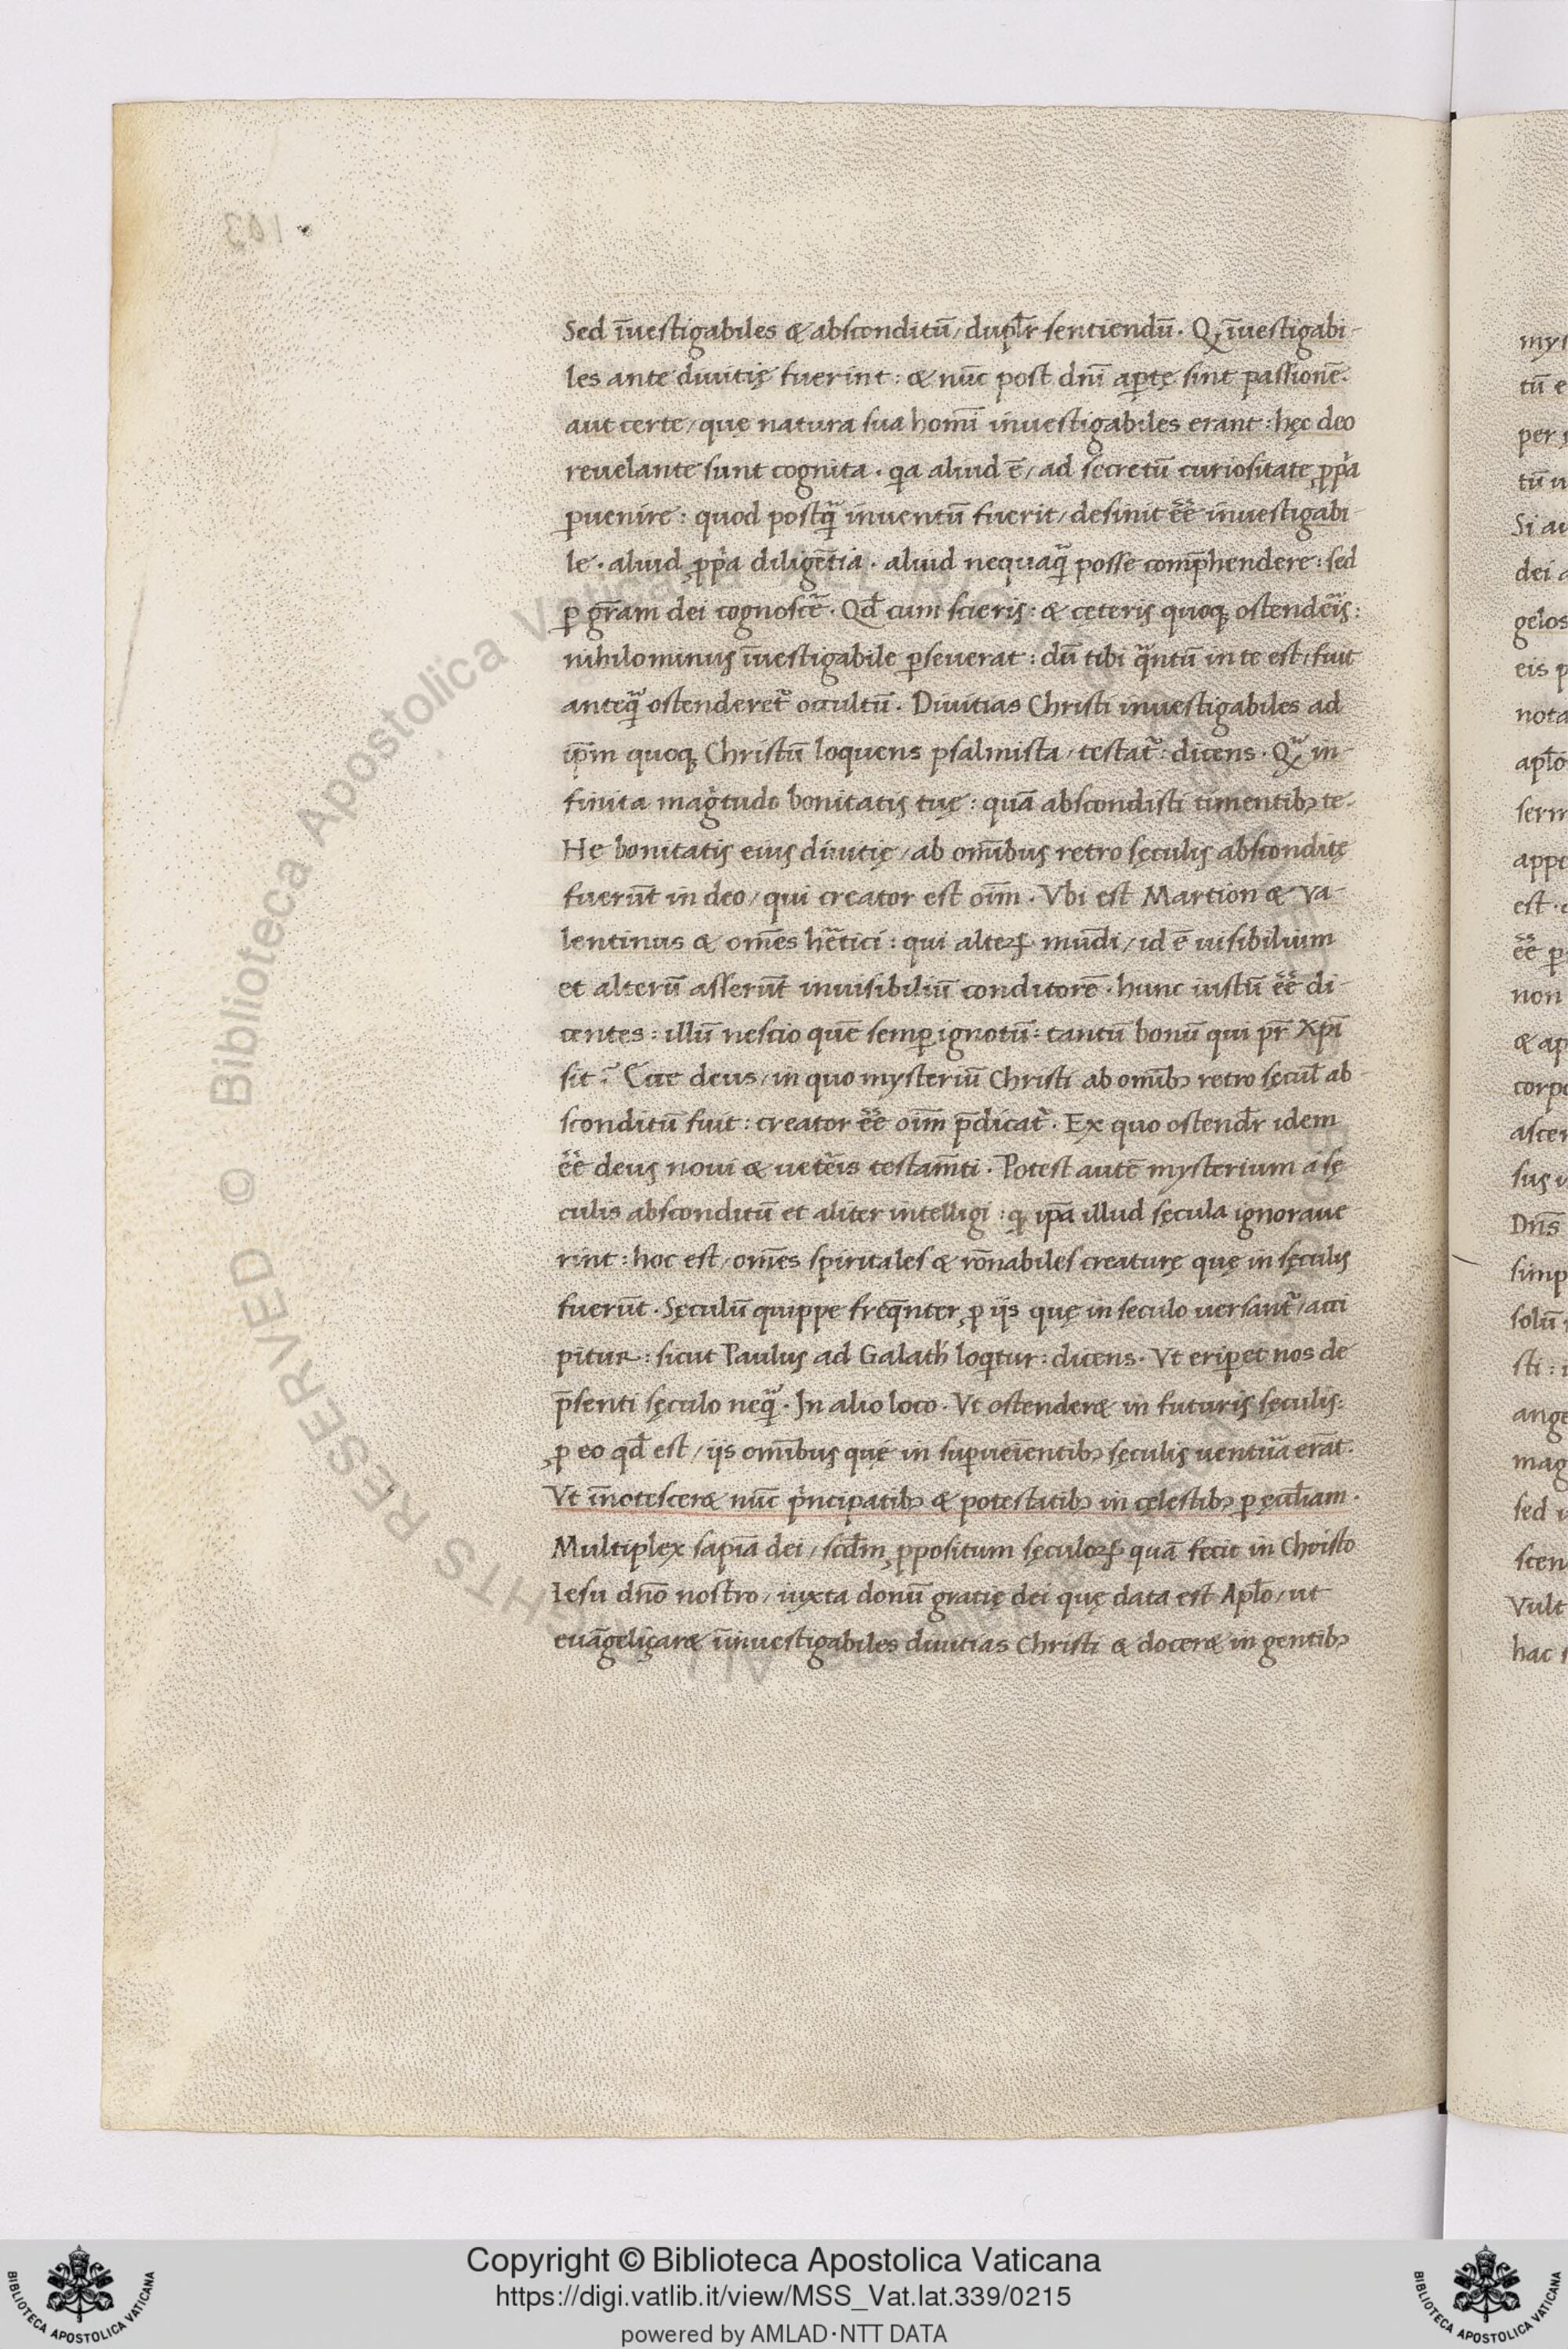 Sed īuestigabiles & absconditū/ dupl̄r sentiendū. Q, īuestigabi-
les ante diuitię fuerint: & nūc post dn̄i aꝑtę sint passionē.
aut certe/ quę natura sua homī inuestigabiles erant: hęc deo
reuelante sunt cognita. qa aliud ē/ ad secretū curiositate ꝓpa
ꝑuenire: quod postꝗ̃ inuentū fuerit/ desinit ēē inuestigabi-
le. aliud ꝓpa diligētia. aliud nequaꝗ̃ posse comp̄hendere: sed
ꝑ gr̄am dei cognoscē. Qd̄ cum scieris: & cęteris quoq; ostendēis:
nihilominus īuestigabile ꝑseuerat: dū tibi q̃ntū in te est/ fuit
anteꝗ̃ ostenderet᷑ occultū. Diuitias Christi inuestigabiles ad
ip̄m quoq; Christū loquens psalmista/ testat᷑: dicens. Q̃ in-
finita magᷤtudo bonitatis tuę: quā abscondisti timentibꝫ te.
He bonitatis eius diuitię/ ab om̄ibus retro sęculis absconditę
fuerūt in deo/ qui creator est oīm. Vbi est Martion & Va-
lentinus & om̄es hētici: qui alteꝝ mūdi/ id ē uisibilium
et alterū asserūt inuisibiliū conditorē. hunc iustū ēē di-
centes: illū nescio quē semꝑ ignotū: tantū bonū qui pr̄ Xp̄i
sit? Ecce deus/ in quo mysteriū Christi ab omībꝫ retro sęcul̄ ab-
sconditū fuit: creator ēē oīm p̄dicat᷑. Ex quo ostendr̄ idem
ēē deus noui & uetēis testam̄ti. Potest autē mysterium a sę
culis absconditū et aliter intelligi: ꝙ ip̄a illud sęcula ignoraue
rint: hoc est/ om̄es spiritales & rōnabiles creaturę quę in sęculis
fuerūt. Sęculū quippe freq̄nter ꝓ ijs quę in seculo uersant᷑/ acci
pitur: sicut Paulus ad Galath̄ loqtur: dicens. Vt eriꝑet nos de
p̄senti sęculo neꝗ̃. In alio loco. Vt ostender& in futuris sęculis:
ꝓ eo qd̄ est/ ijs om̄ibus quę in suꝑueiēntibꝫ sęculis uentūa erāt.
Vt īnotescer& nūc pᷤncipatibꝫ & potestatibꝫ in cęlestibꝫ ꝑ ęccl̄iam.
Multiplex sapīa dei/ scd̄m ꝓpositum sęculoꝝ quā fecit in Christo
Iesu dn̄o nostro/ iuxta donū gratię dei quę data est Apl̄o/ ut
euāgeliçar& īinuestigabiles diuitias Christi & docer& in gentibꝫ
Copyright © Biblioteca Apostolica Vaticana
https://digi.vatlib.it/view/MSS_Vat.lat.339/0215
powered by AMLAD·NTT DATA